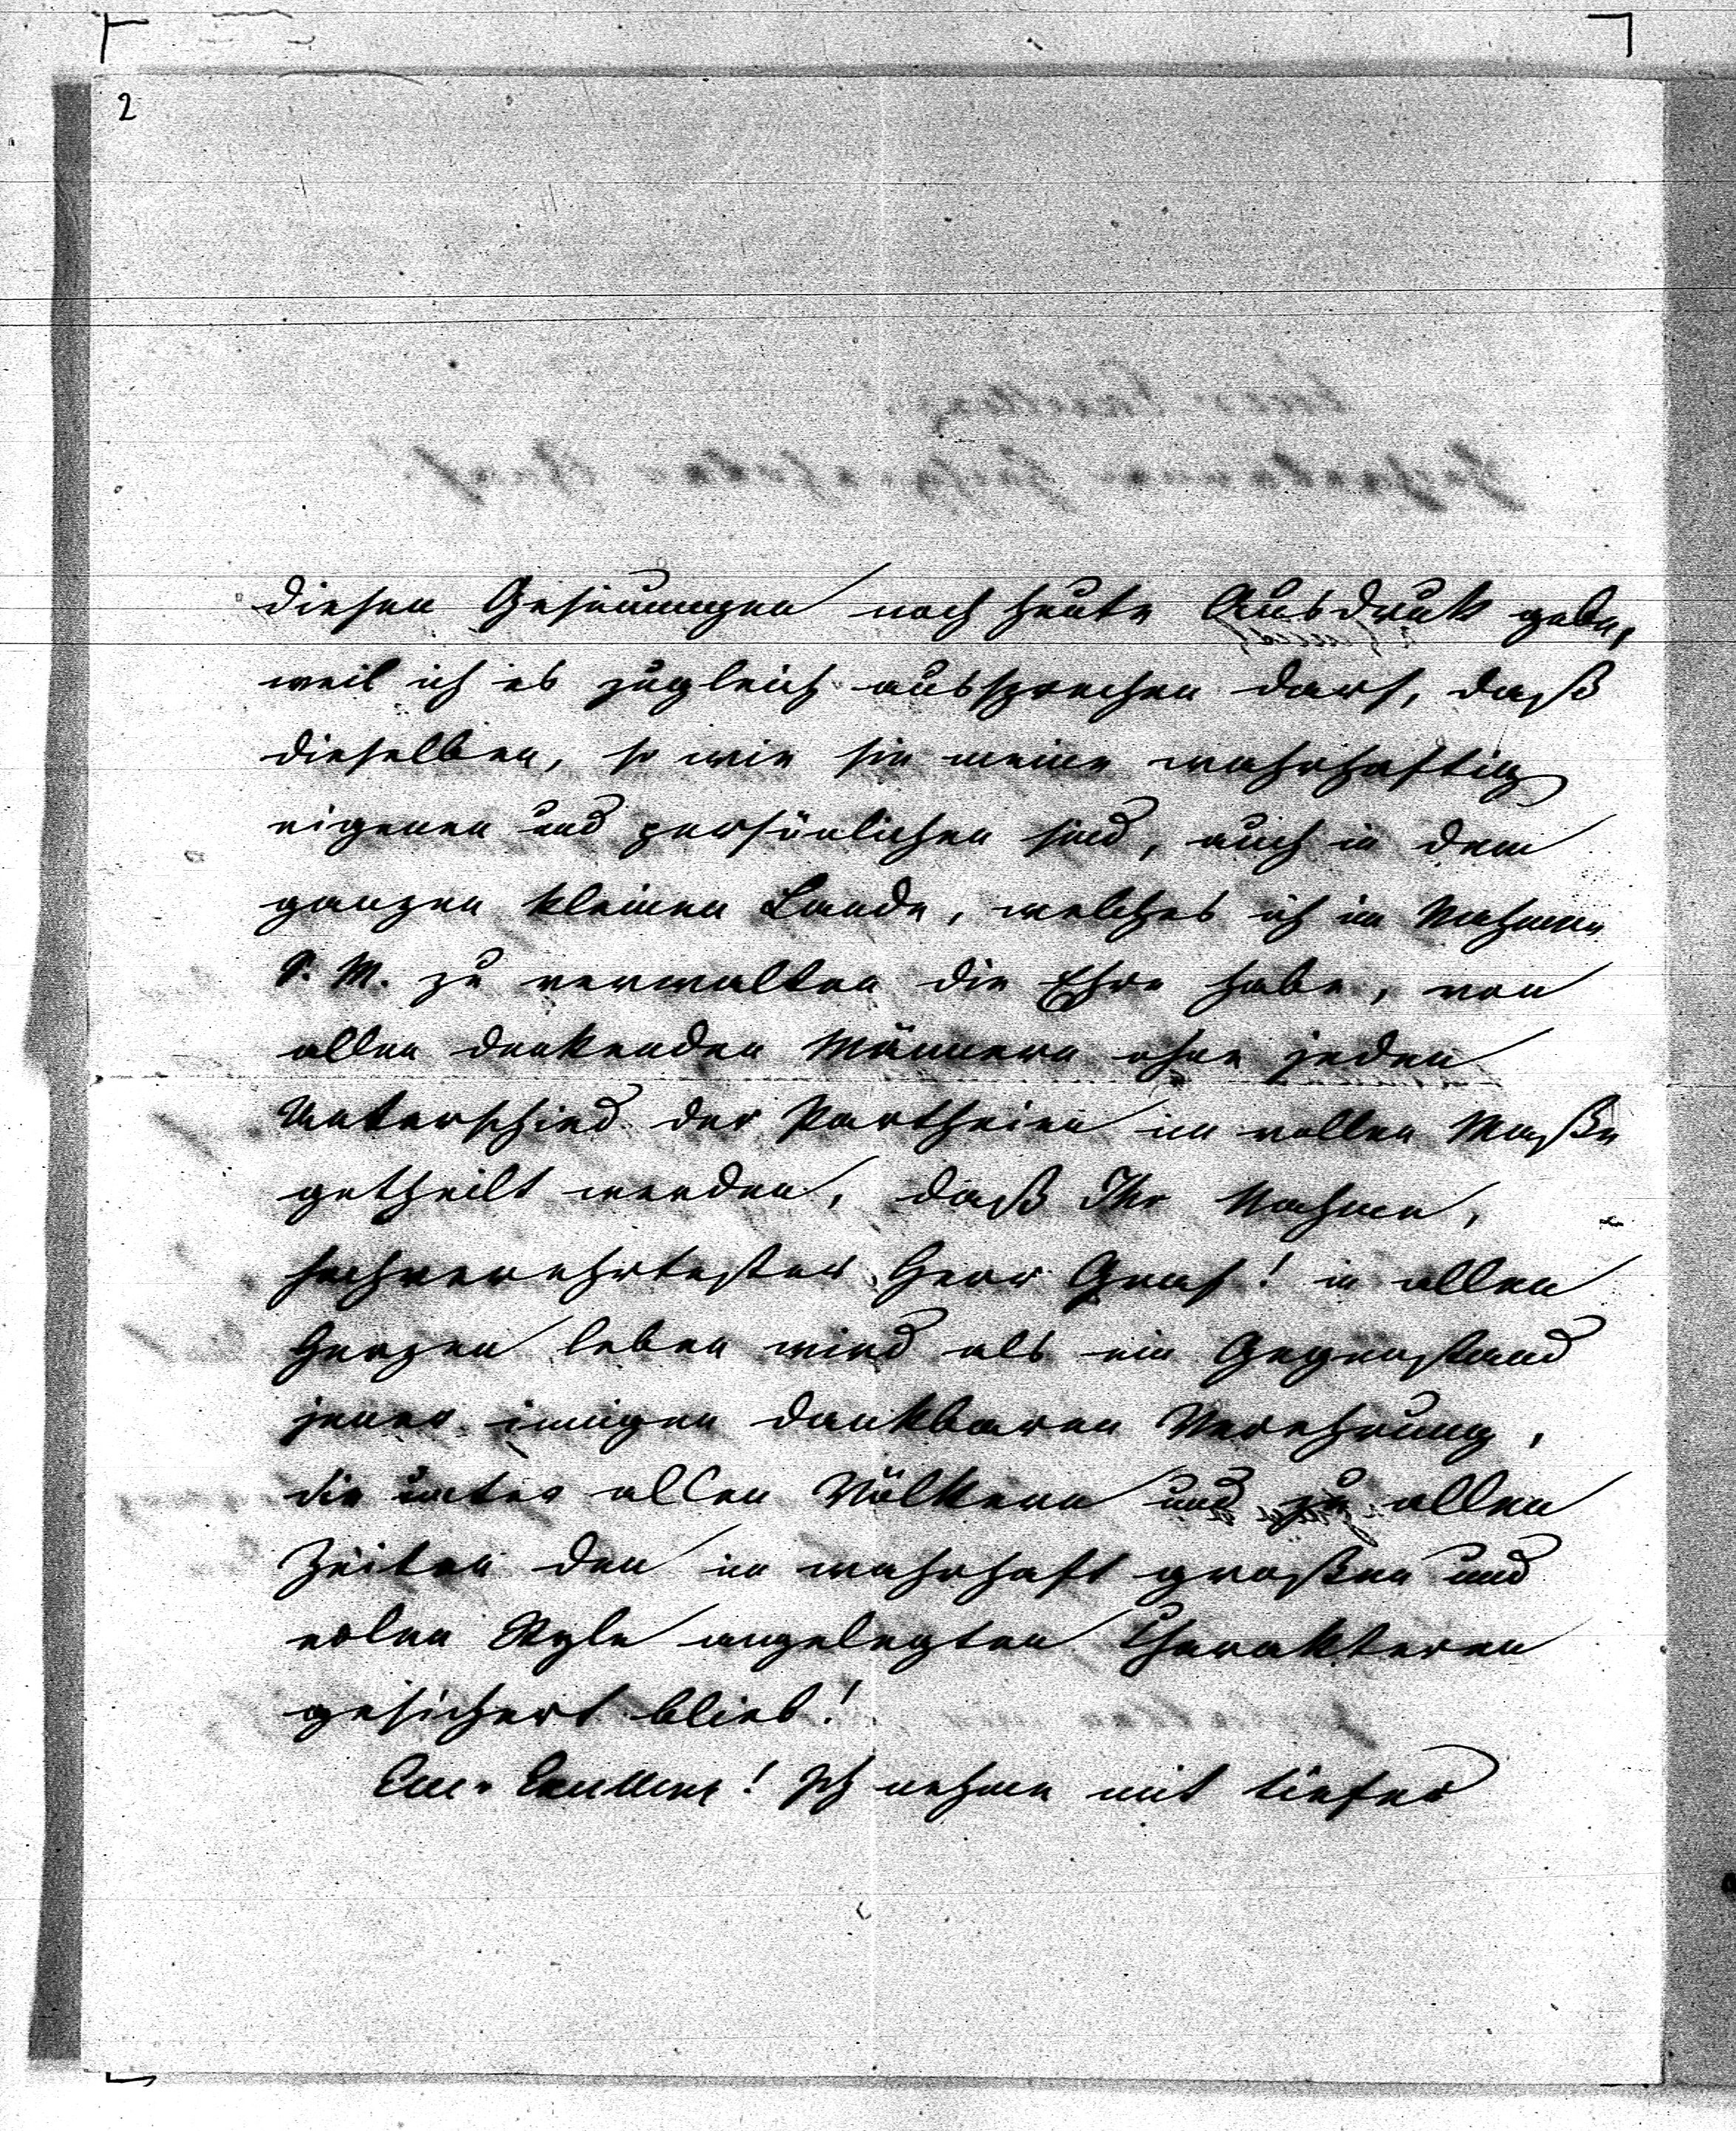 2
diesen Gesinnungen noch heute Ausdruk gebe,
weil ich es zugleich aussprechen darf, daß
dieselben, so wie sie meine wahrhaftig
eigenen und persönlichen sind, auch in dem
ganzen kleinen Lande, welches ich im Nahmen
S. M. zu verwalten die Ehre habe, von
allen denkenden Männern ohne jeden
Unterschied der Partheien im vollen Maße
getheilt werden, daß Ihr Nahme,
hochverehrtester Herr Graf! in allen
Herzen leben wird als ein Gegenstand
jener innigen dankbaren Verehrung,
die unter allen Völkern und zu allen
Zeiten den im wahrhaft großen und
edlen Style angelegten Charakteren
gesichert blieb!
Euer Excellenz! Ich nehme mit tiefer